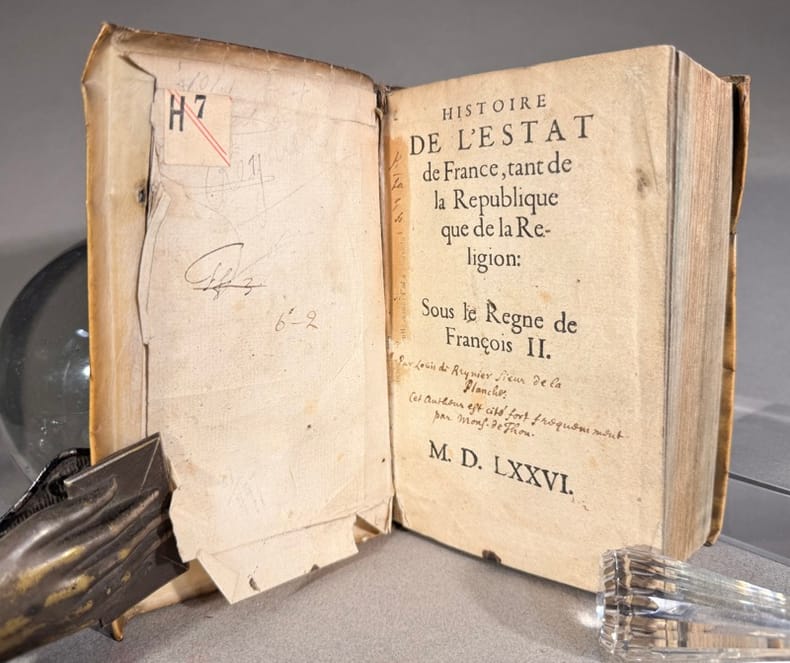 H 7
6-2
HISTOIRE
DE L'ESTAT
de France, tant de
la Republique
que de la Re-
ligion:
Sous le Regne de
François II.
Par Louis de Regnier Sieur de la
Planche.
Cet Autheur est cité fort frequemment
par Mons. de Thou.
M. D. LXXVI.